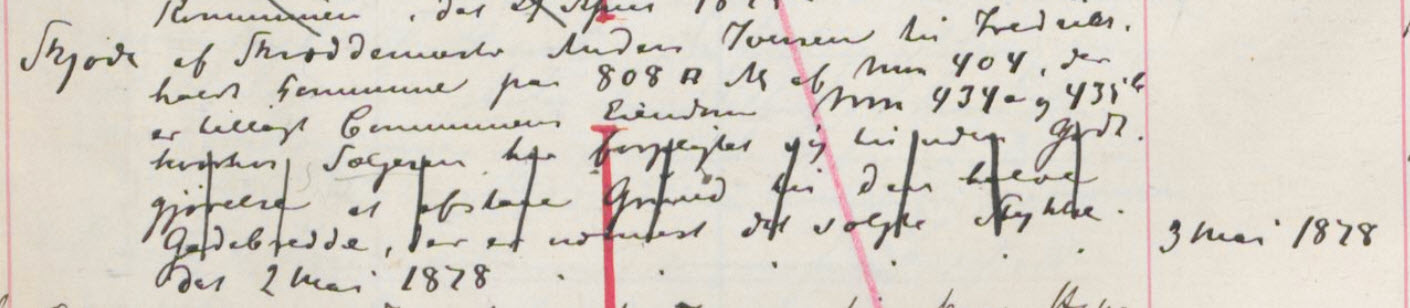 Kommunen, dat 27 April 18
Skjøde af Skræddermester Anders Iversen til Frederiks-
havns Kommune paa 808 □ Al af Mun 404, der
er tillagt Communens Eiendom Mun 434a og 435b
hvorhos Sælgeren har forpligtet sig til uden Godt-
gjørelse at afstaae Grund til den halve
Gadebredde, der er nærmest det solgte Stykke.
dat 2 Mai 1878
3 Mai 1878